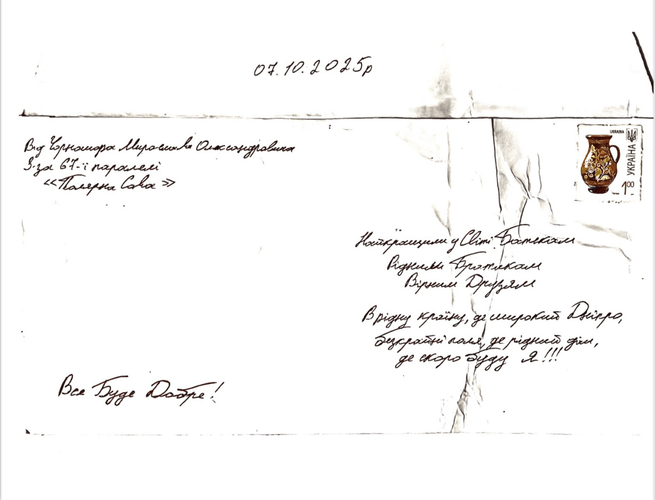 07.10.2025р
UKRAINA
УКРАЇНА
1.00
Від Чорномора Мирослава Олександровича
З-за 67-ї паралелі
«Полярна Сова»
Найкращим у Світі Батькам
Рідним Братикам
Вірним Друзям
В рідну країну, де широкий Дніпро,
безкрайні поля, де рідний дім,
де скоро буду Я!!!
Все Буде Добре!